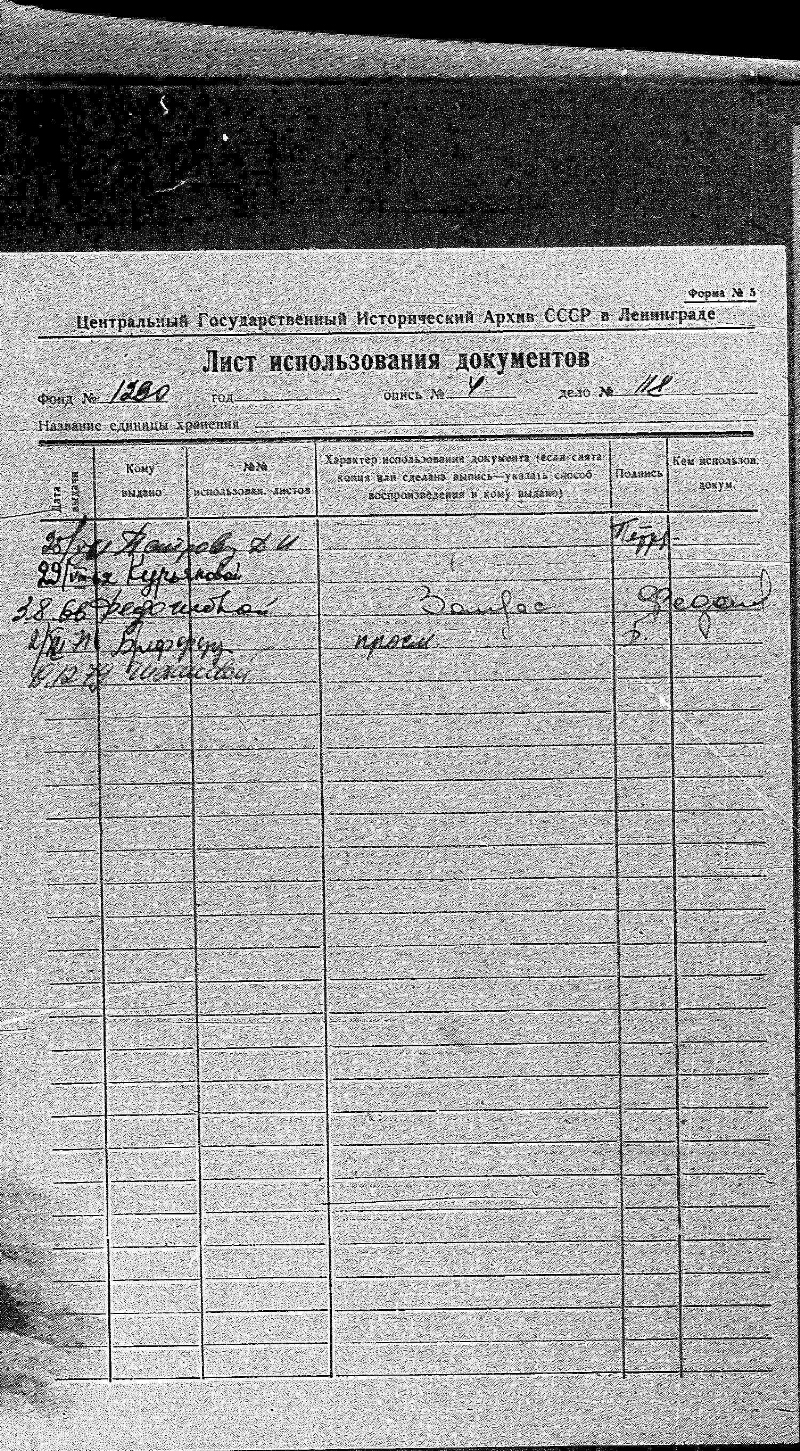 Форма № 5
Центральный Государственный Исторический Архив СССР в Ленинграде
Лист использования документов
Фонд № 1290 год опись № 4 дело № 118
Название единицы хранения
Дата выдачи
Кому выдано
№№ использован. листов
Характер использования документа (если снята копия или сделана выпись—указать способ воспроизведения и кому выдано)
Подпись
Кем использов. докум.
Петрову Д И
29/VIII Курьяновой
3.8 66 Запрос
просм. Б.